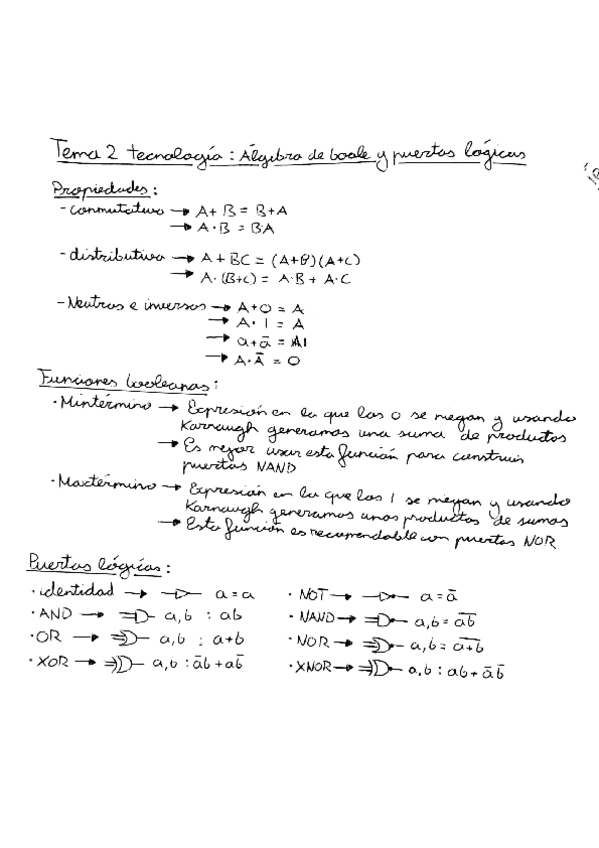 Tema 2 tecnología: Álgebra de boole y puertas lógicas
Propiedades:
- conmutativa → A + B = B + A
→ A · B = B·A
- distributiva → A + BC = (A+B)(A+C)
→ A·(B+C) = A·B + A·C
- Neutros e inversos → A + 0 = A
→ A · 1 = A
→ a + ā = 1
→ A · Ā = 0
Funciones booleanas:
· Mintérmino → Expresión en la que los 0 se niegan y usando
Karnaugh generamos una suma de productos
→ Es mejor usar esta función para construir
puertas NAND
· Maxtérmino → Expresión en la que los 1 se niegan y usando
Karnaugh generamos unos productos de sumas
→ Esta función es recomendable con puertas NOR
Puertas lógicas:
· identidad → a = a · NOT → a = ā
· AND → a, b : ab · NAND → a, b = a̅b̅
· OR → a, b : a+b · NOR → a, b = a̅+̅b̅
· XOR → a, b : āb + ab̄ · XNOR → a, b : ab + āb̄